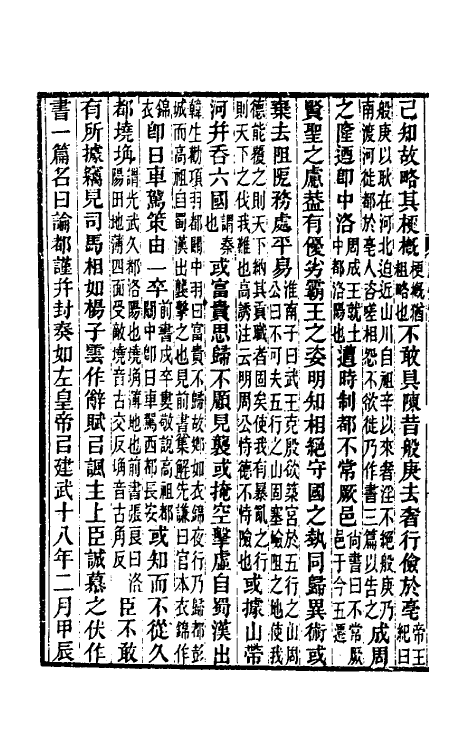 己知故略其梗概梗概猶粗略也不敢具陳昔般庚去奢行儉於亳帝王紀曰
般庚以耿在河北迫近山川自祖辛以來奢淫不絕般庚乃
南渡河徙都於亳人咨嗟相怨不欲徙乃作書三篇以告之成周
之隆迺即中洛周成王就土中都洛陽也遭時制都不常厥邑尚書曰不常厥邑于今五遷
賢聖之慮蓋有優劣霸王之姿明知相絕守國之埶同歸異術或
棄去阻阸務處平易淮南子曰武王克殷欲築宮於五行之山周公曰不可夫五行之山固塞險阻之地使我
德能覆之則天下納其貢職者固矣使我有暴亂之行
則天下之伐我難也高誘注云明周公恃德不恃險也或據山帶
河并吞六國謂秦也或富貴思歸不顧見襲或掩空擊虛自蜀漢出
韓生勸項羽都關中羽曰富貴不歸故鄉如衣錦夜行乃歸都彭
城而高祖自蜀漢出襲擊之也見前書集解先謙曰官本衣錦作
錦衣即日車駕策由一卒前書戍卒婁敬說高祖都關中即日車駕西都長安或知而不從久
都墝埆謂光武久都洛陽也墝埆薄地也前書張良曰洛陽田地薄四面受敵墝音苦交反埆音苦角反臣不敢
有所據竊見司馬相如楊子雲作辭賦㠯諷主上臣誠慕之伏作
書一篇名曰論都謹并封奏如左皇帝㠯建武十八年二月甲辰